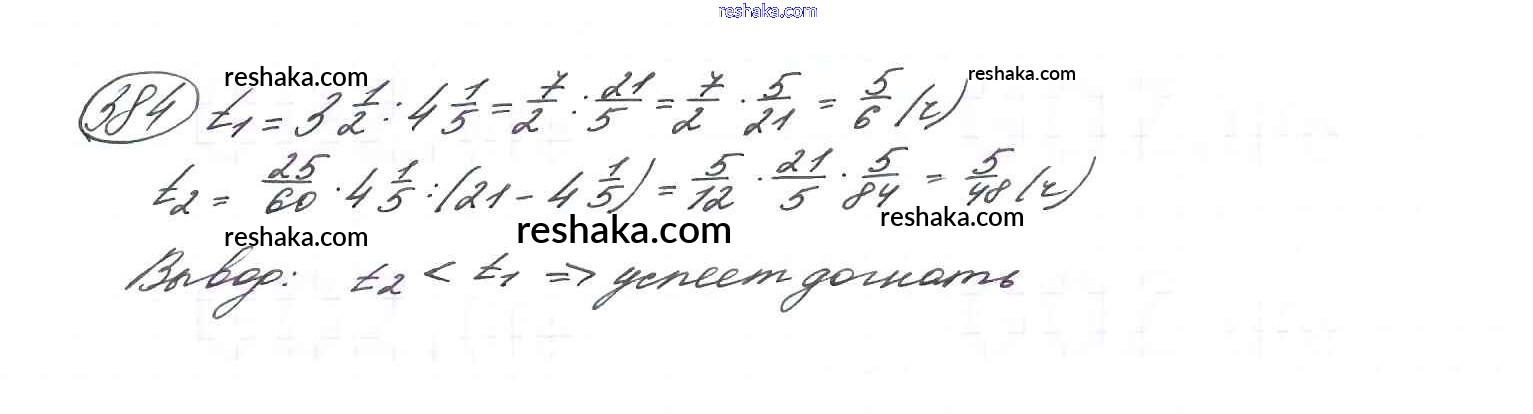 reshaka.com
reshaka.com reshaka.com
384 t₁ = 3 1/2 : 4 1/5 = 7/2 : 21/5 = 7/2 · 5/21 = 5/6 (ч)
t₂ = 25/60 · 4 1/5 : (21 - 4 1/5) = 5/12 · 21/5 · 5/84 = 5/48 (ч)
reshaka.com reshaka.com reshaka.com
Вывод: t₂ < t₁ => успеет догнать